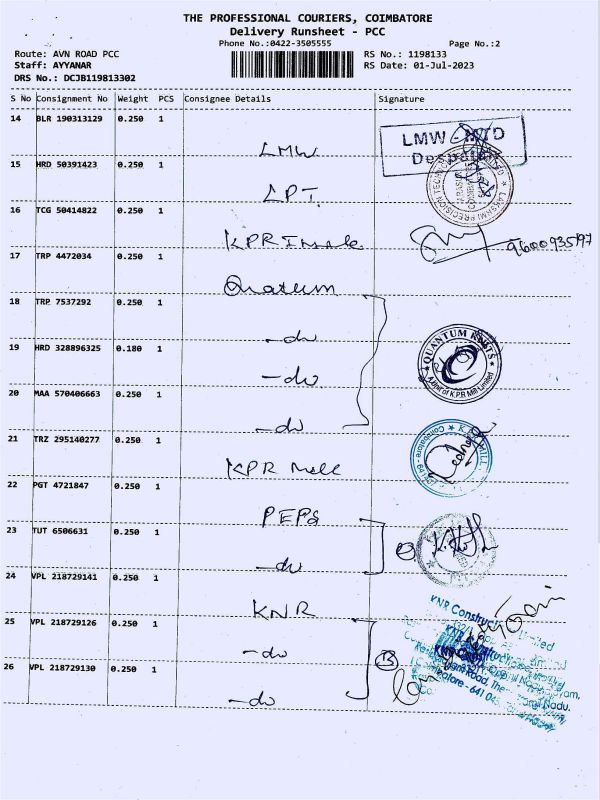 THE PROFESSIONAL COURIERS, COIMBATORE
Delivery Runsheet - PCC
Phone No.:0422-3505555 Page No.:2
Route: AVN ROAD PCC RS No.: 1198133
Staff: AYYANAR RS Date: 01-Jul-2023
DRS No.: DCJB119813302
S No Consignment No Weight PCS Consignee Details Signature
14 BLR 190313129 0.250 1
LMW
LMW
Despatch
15 HRD 50391423 0.250 1
LPT.
LAKSHMI PRECISION TECHNO
16 TCG 50414822 0.250 1
KPR
9600935197
17 TRP 4472034 0.250 1
Quatum
18 TRP 7537292 0.250 1
-do
19 HRD 328896325 0.180 1
-do
QUANTUM KNITS
A Unit of K.P.R Mill Limited
20 MAA 570406663 0.250 1
-do
21 TRZ 295140277 0.250 1
KPR Mill
MILL
Coimbatore
22 PGT 4721847 0.250 1
PEPS
23 TUT 6506631 0.250 1
-do
24 VPL 218729141 0.250 1
KNR
KNR Constructions Limited
25 VPL 218729126 0.250 1
-do
3
26 VPL 218729130 0.250 1
-do